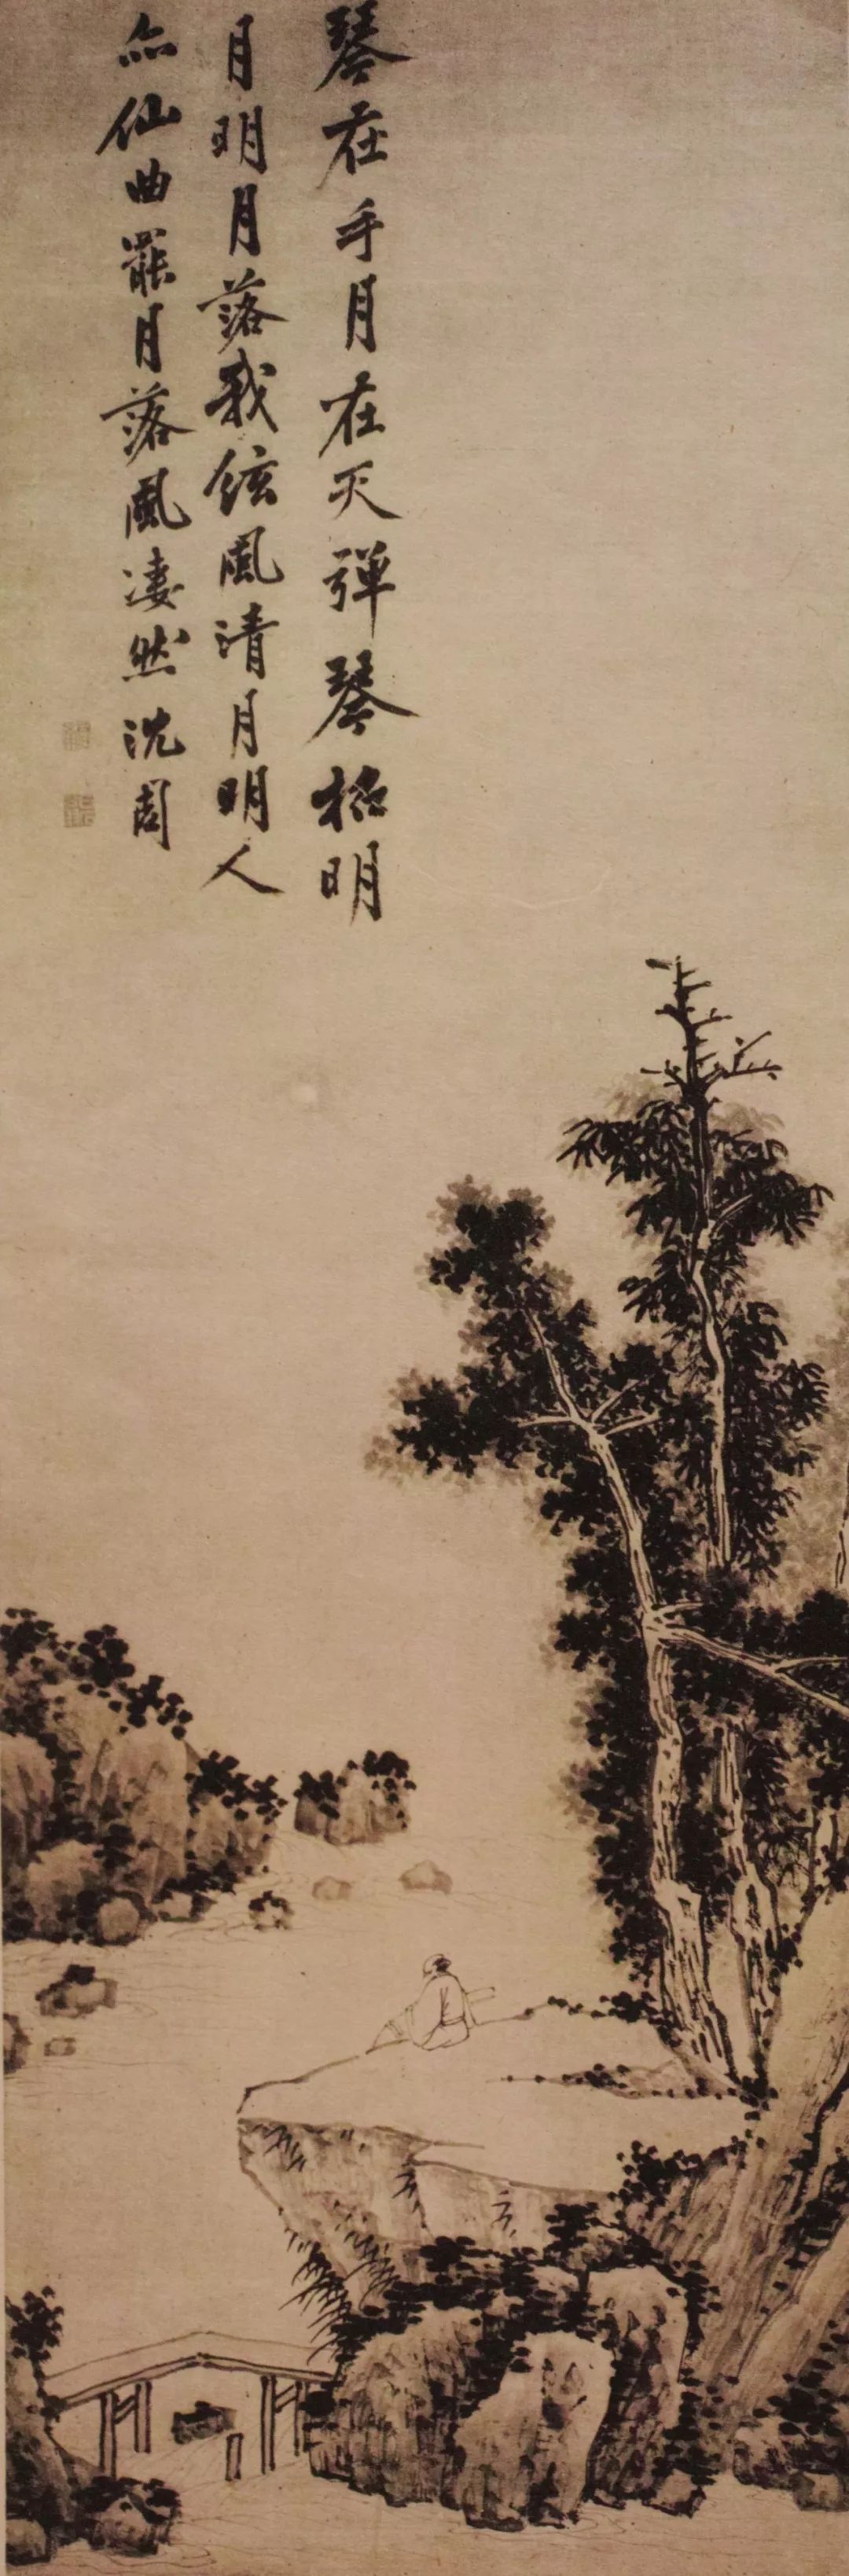 琴在手月在天弹琴招明
月明月落我弦風清月明人
亦仙曲罷月落風凄然沈周